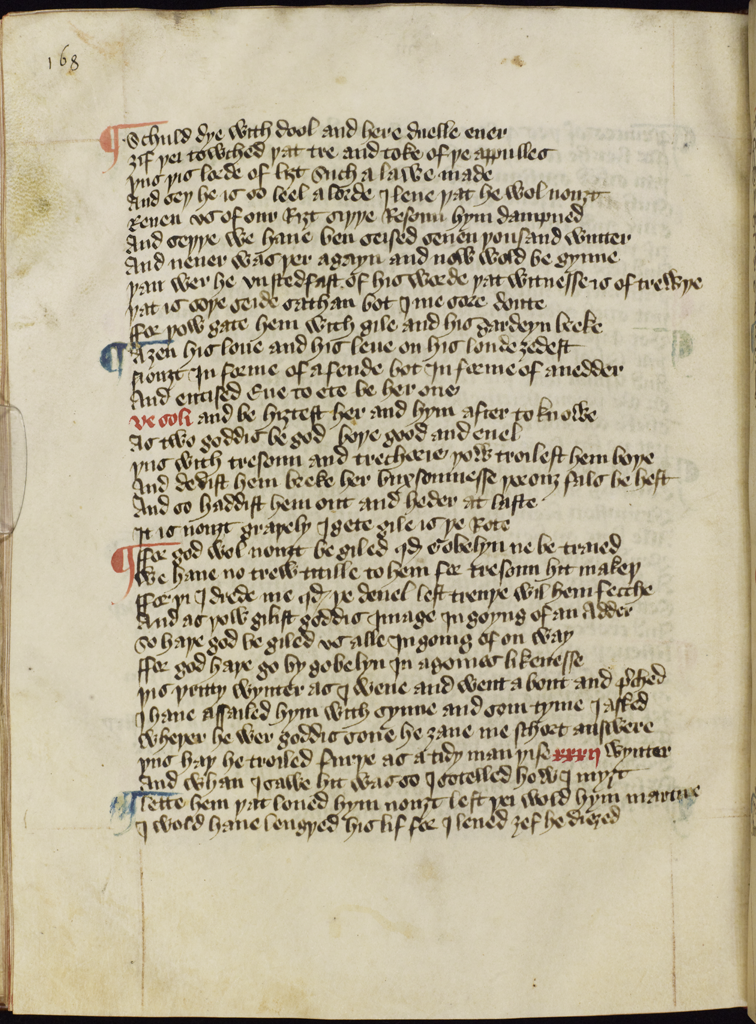 168
Schuld dye with dool and here duelle euer
ȝif þei towched þat tre and toke of þe appulles
þus þis lorde of liȝt Such a lawe made
And sey he is so leel a lorde I leue þat he wol nouȝt
Reuen vs of our Riȝt siþþe Resoun hym dampned
And seþþe we haue ben seised seuen þousand wintter
And neuer was þer aȝayn and now wold be gynne
þan wer he vnstedfast of his worde þat witnesse is of trewþe
þat is soþe seide sathan bot I me sore doute
ffor þow gate hem with gile and his gardeyn breke
Aȝen his loue and his leue on his londe ȝedest
Nouȝt In forme of a fende bot In forme of anedder
And entised Eue to ete be her one
ve soli and be hiȝtest her and hym after to knowe
As two goddis be god boþe good and euel
þus with tresoun and trecherie þow troilest hem boþe
And dedist hem breke her buxsomnesse þorouȝ fals be hest
And so haddist hem out and heder at laste
It is nouȝt grayþely I gete gile is þe Rote
ffor god wol nouȝt be giled qd Gobelyn ne be traied
We haue no trew titille to hem for tresoun hit makeþ
ffor þi I drede me qd þe deuel lest treuþe wil hem fecche
And as þow gilist goddis Image In goyng of an Adder
So haþe god be giled vs alle In going of on way
ffor god haþe go by gobelyn In a gomes likenesse
þis þritty wynter as I wene and went a bout and p̄ched
I haue assailed hym with synne and som tyme I asked
Wheþer he wer goddis sone he ȝaue me schort answere
þus haþ he troiled furþe as a tidy man þise xxxij wynter
And whan I sawe hit was so I sotelled how I myȝt
lette hem þat loued hym nouȝt lest þei wold hym martire
I wold haue lengþed his lif for I leued ȝef he dieȝed